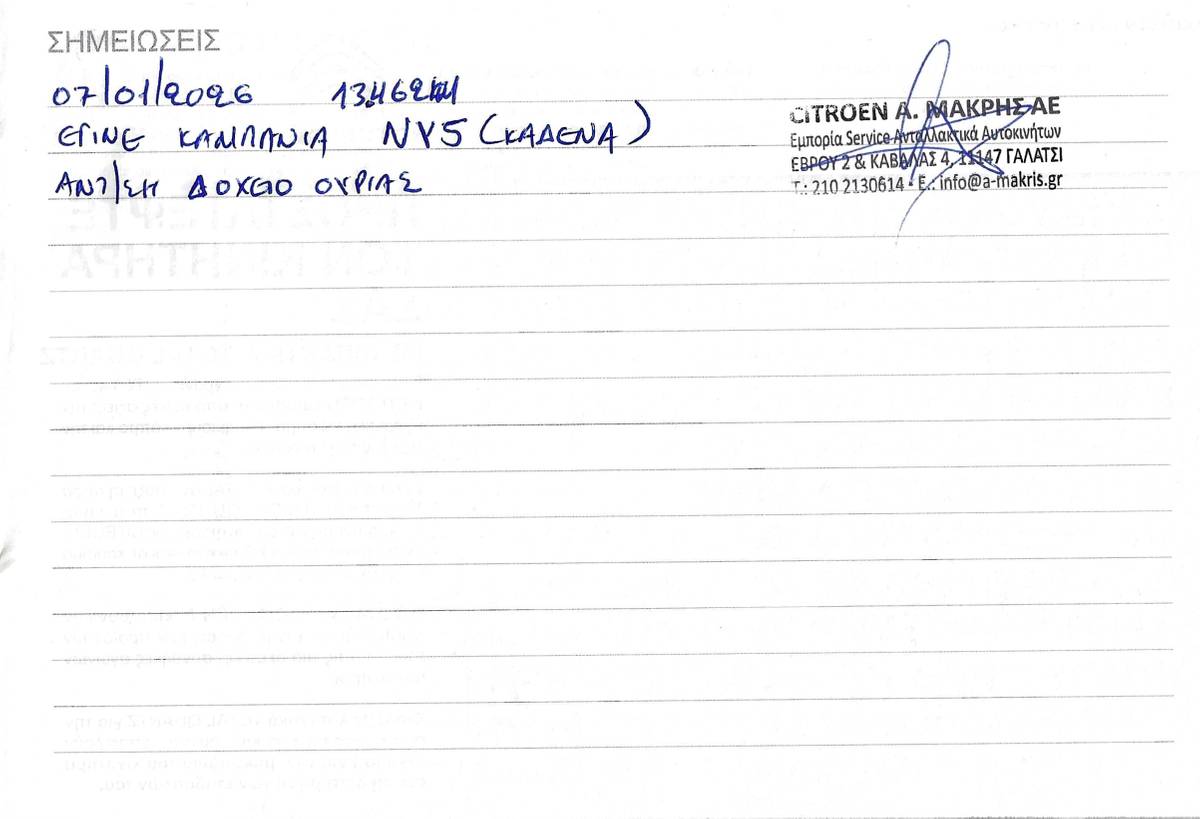 ΣΗΜΕΙΩΣΕΙΣ
07/01/2026 13.462km
ΕΓΙΝΕ ΚΑΜΠΑΝΙΑ NY5 (ΚΑΔΕΝΑ)
ΑΝΤ/ΣΗ ΔΟΧΕΙΟ ΟΥΡΙΑΣ
CITROEN Α. ΜΑΚΡΗΣ ΑΕ
Εμπορία Service Ανταλλακτικά Αυτοκινήτων
ΕΒΡΟΥ 2 & ΚΑΒΑΛΑΣ 4, 11147 ΓΑΛΑΤΣΙ
Τ.: 210 2130614 - E.: info@a-makris.gr